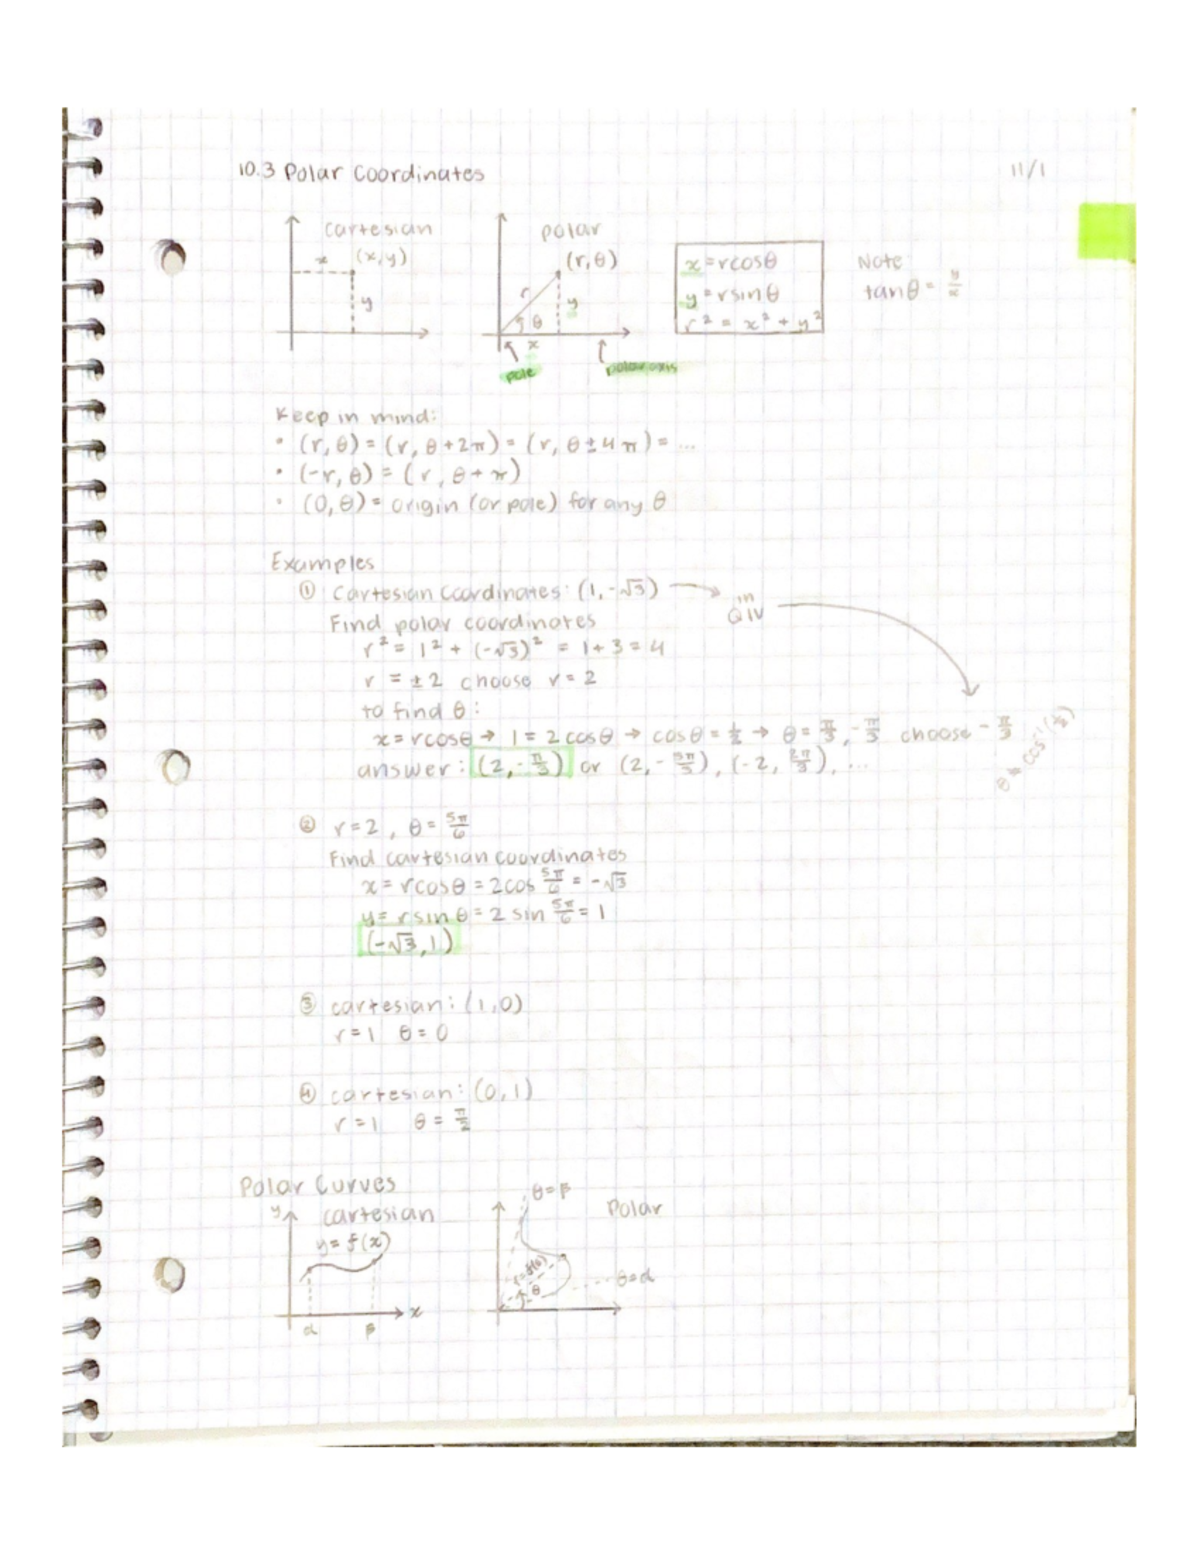 10.3 Polar Coordinates 11/1
cartesian
x (x,y)
y
polar
(r,θ)
r y
θ
x
pole polar axis
x = rcosθ
y = rsinθ
r² = x² + y²
Note
tanθ = y/x
Keep in mind:
• (r,θ) = (r, θ+2π) = (r, θ±4π) = ...
• (-r,θ) = (r, θ+π)
• (0,θ) = origin (or pole) for any θ
Examples
① Cartesian Coordinates: (1,-√3) → in QIV
Find polar coordinates
r² = 1² + (-√3)² = 1+3 = 4
r = ±2 choose r = 2
to find θ:
x = rcosθ → 1 = 2cosθ → cosθ = 1/2 → θ = π/3, -π/3 choose -π/3
θ = cos⁻¹(1/2)
answer: (2, -π/3) or (2, -5π/3), (-2, 2π/3), ...
② r=2, θ = 5π/6
Find cartesian coordinates
x = rcosθ = 2cos 5π/6 = -√3
y = rsinθ = 2 sin 5π/6 = 1
(-√3,1)
③ cartesian: (1,0)
r=1 θ=0
④ cartesian: (0,1)
r=1 θ = π/2
Polar Curves
y cartesian
y = f(x)
x
α β
θ=β
Polar
r=f(θ)
θ
θ=α